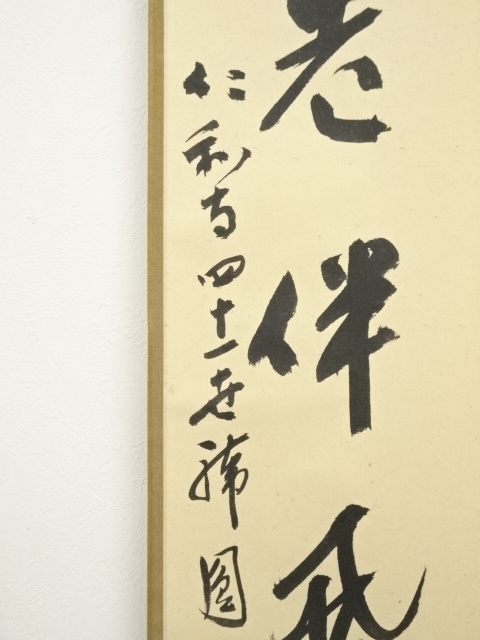 老伴
仁和寺四十一世諦圓